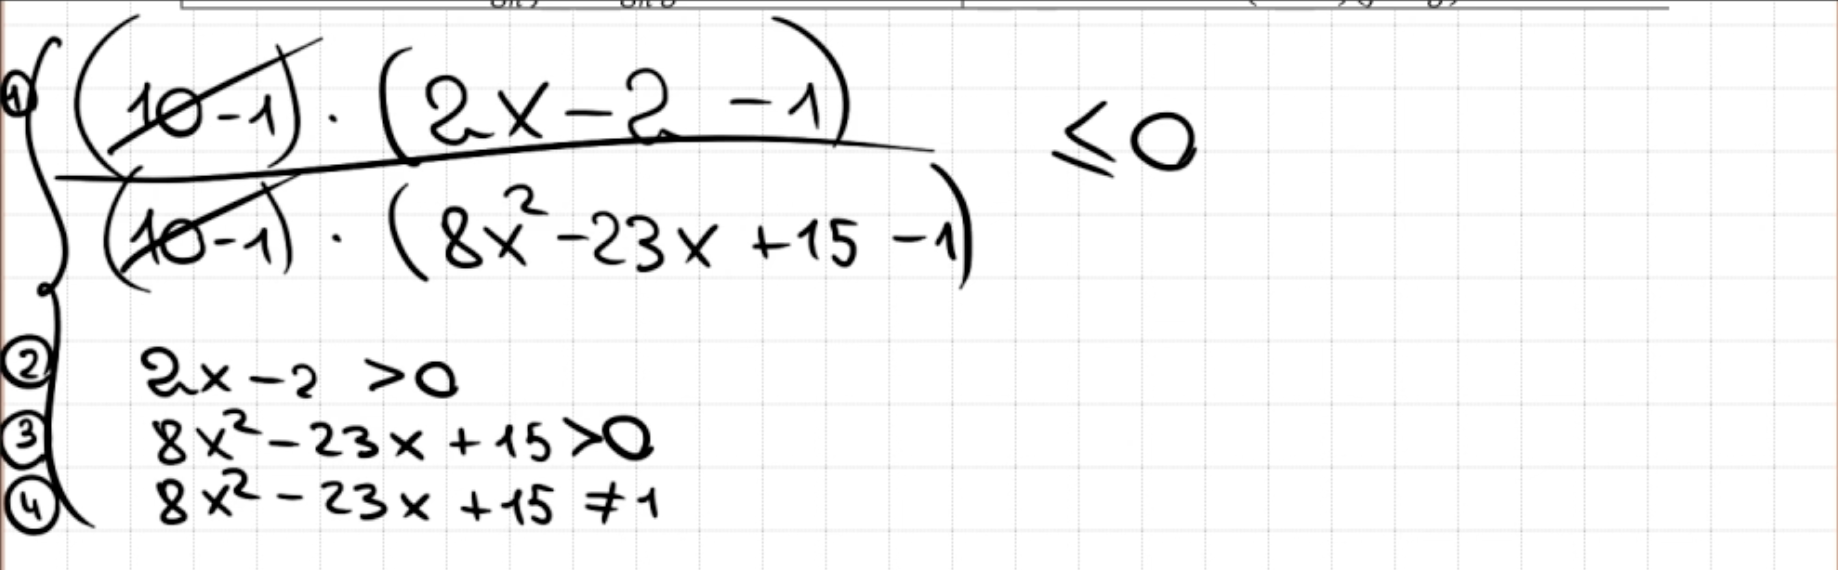 ① ((10-1) · (2x-2-1)) / ((10-1) · (8x²-23x+15-1)) ≤0
② 2x-2 >0
③ 8x²-23x+15>0
④ 8x²-23x+15≠1